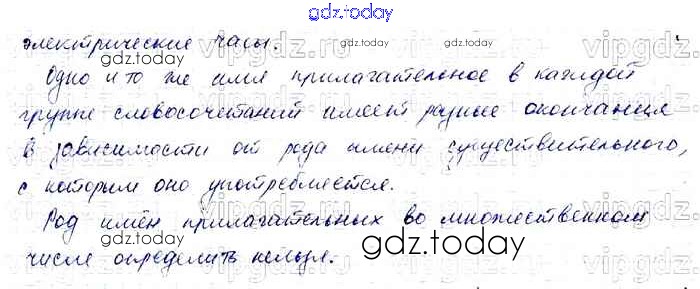 gdz.today
электрические часы.
gdz.today
Одно и то же имя прилагательное в каждой
группе словосочетаний имеет разные окончания
в зависимости от рода имени существительного,
с которым оно употребляется.
gdz.today
Род имён прилагательных во множественном
gdz.today
gdz.today
числе определить нельзя.